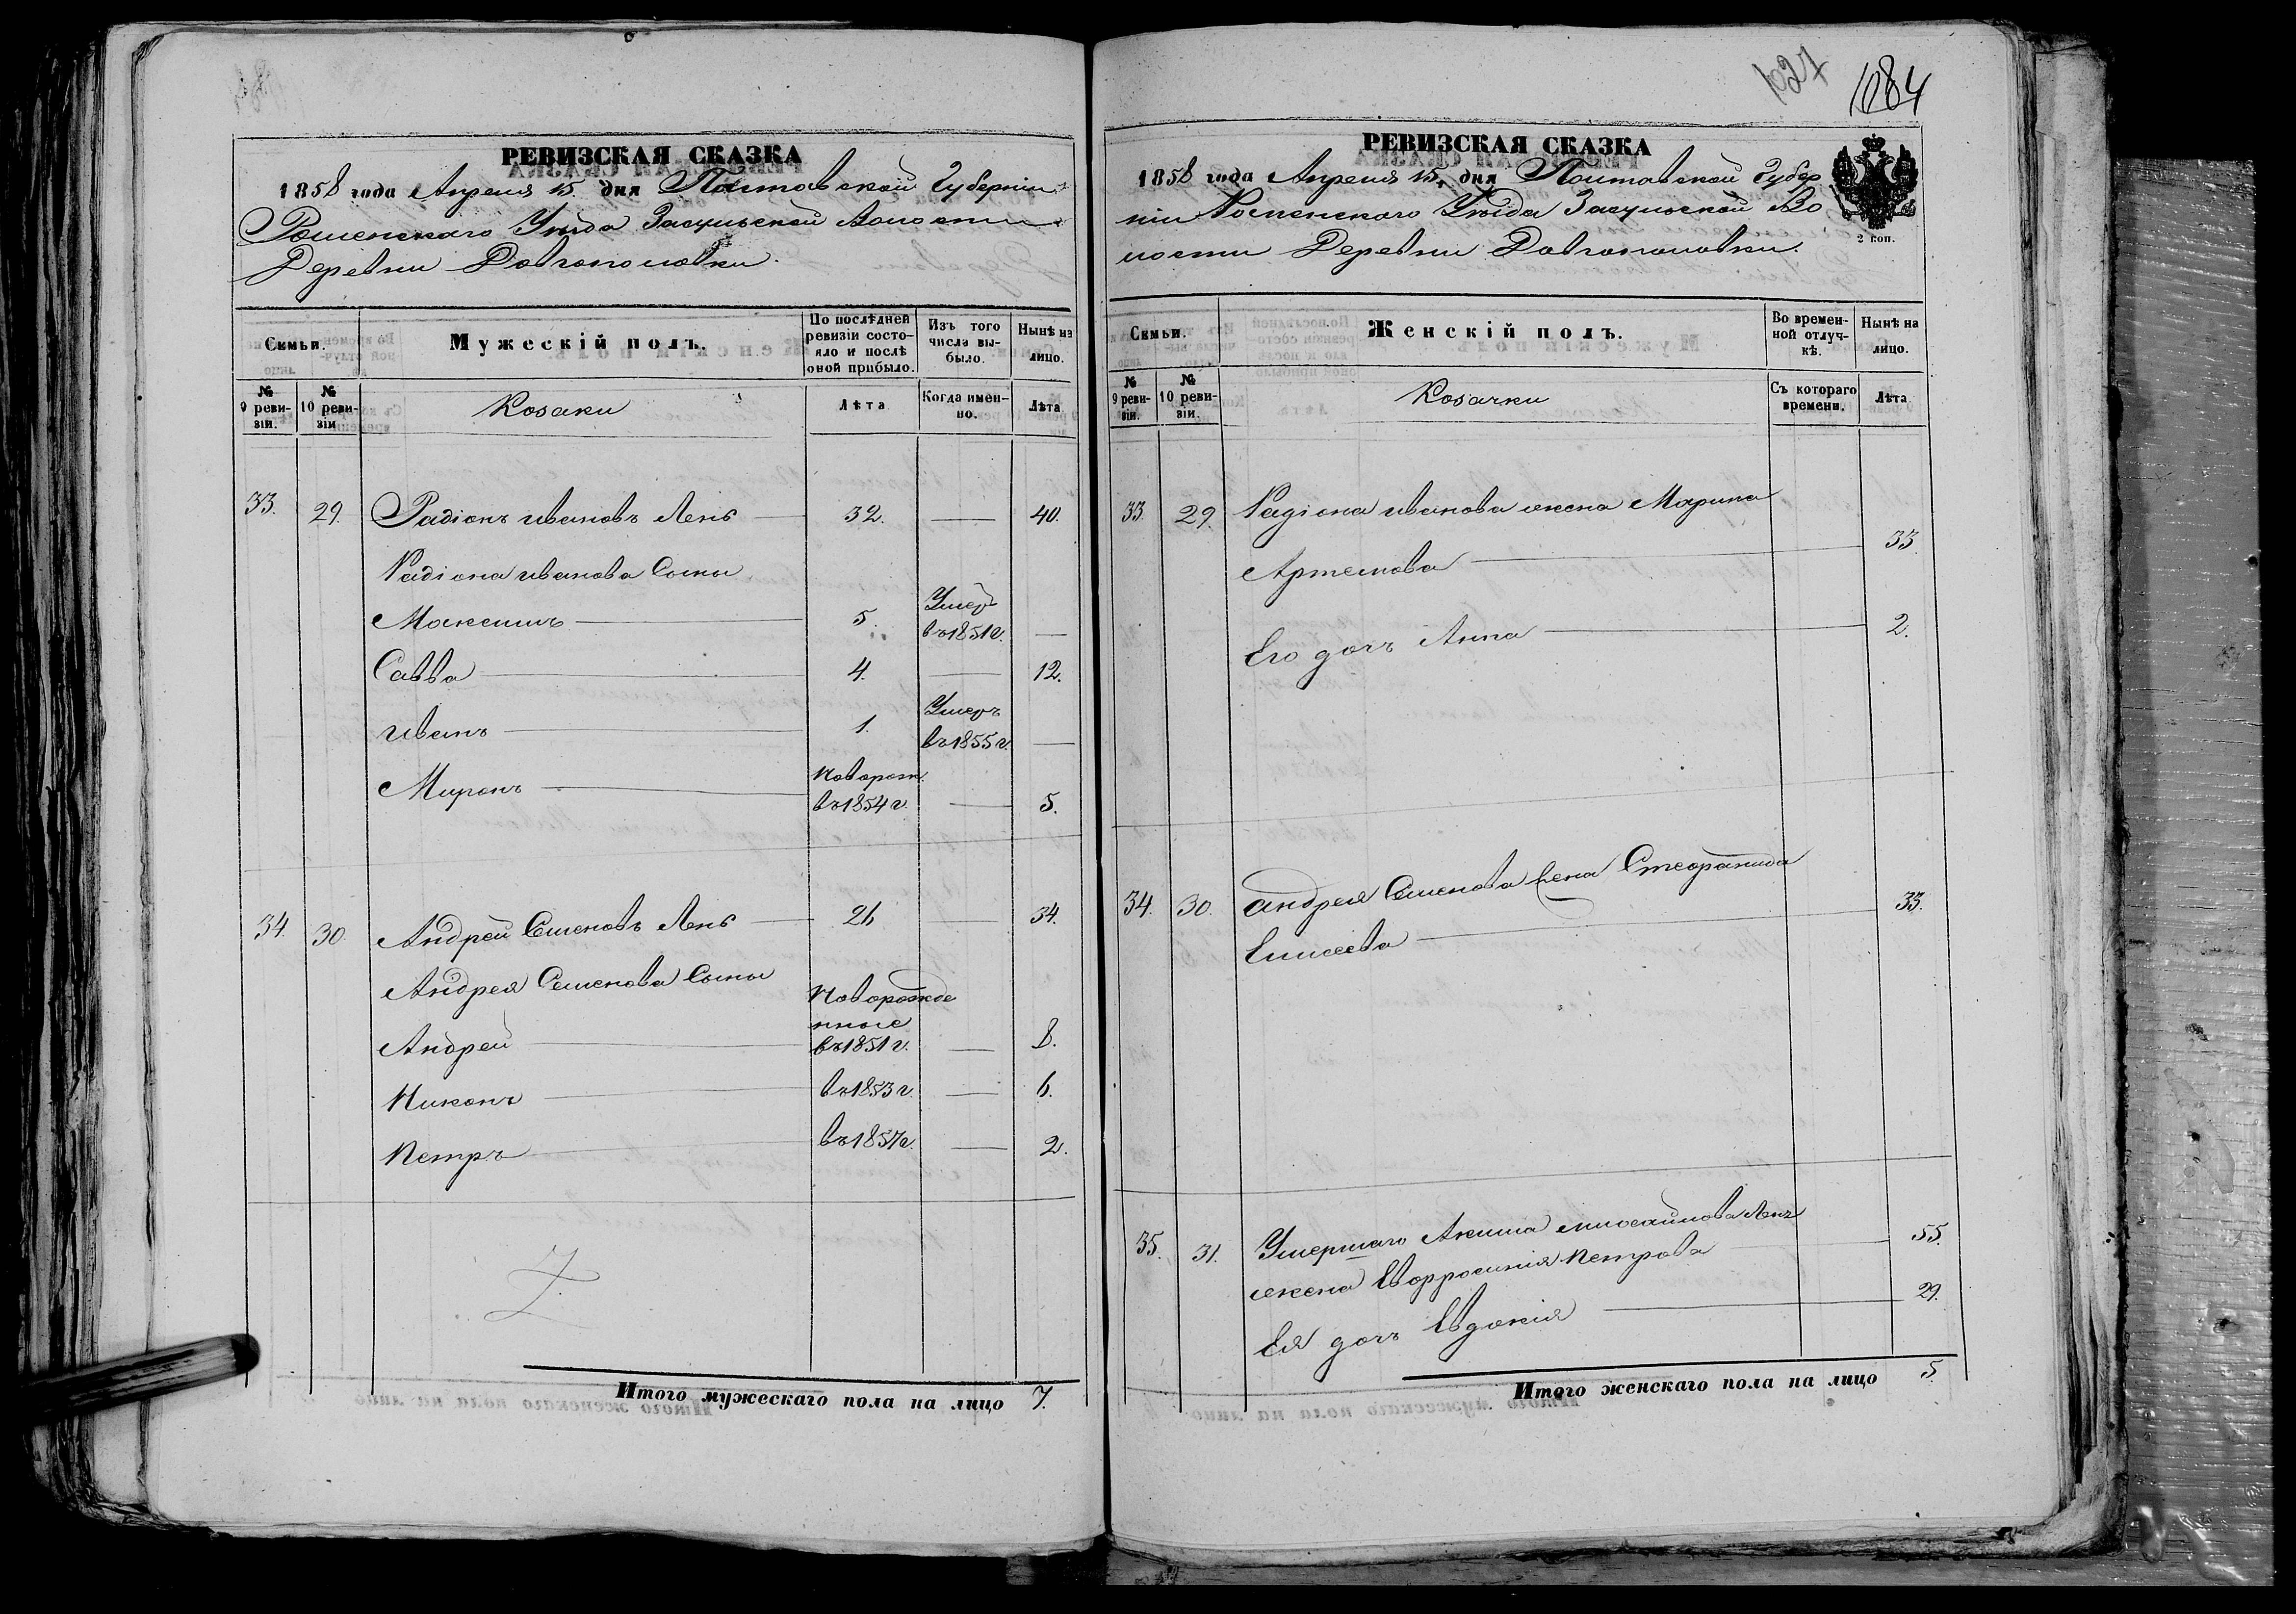 РЕВИЗСКАЯ СКАЗКА
1858 года Апреля 15 дня Полтавской Губерніи
Роменскаго Уѣзда Засульской Волости
Деревни Довгополовки.
Семьи.
Мужескій полъ.
По послѣдней ревизіи состояло и послѣ оной прибыло.
Изъ того числа выбыло.
Нынѣ на лицо.
№ 9 ревизіи.
№ 10 ревизіи
Козаки
Лѣта
Когда именно.
Лѣта
33. 29. Радіонъ ивановъ Лень 32. 40.
Радіона иванова Сыны
Максимъ 5. Умер въ 1851 г.
Савва 4. 12.
иванъ 1. Умеръ въ 1855 г.
Миронъ Новорож. въ 1854 г. 5.
34. 30. Андрей Семеновъ Лень 26 34.
Андрея Семенова Сыны
Новорожденные
Андрей въ 1851 г. 8.
Никонъ въ 1853 г. 6.
Петръ въ 1857 г. 2.
Итого мужескаго пола на лицо 7.
1027
1084
РЕВИЗСКАЯ СКАЗКА
1858 года Апреля 15. дня Полтавской Губер
ніи Роменского Уѣзда Засульской Во
лости Деревни Довгополовки.
2 коп.
Семьи.
Женскій полъ.
Во временной отлучкѣ.
Нынѣ на лицо.
№ 9 ревизіи.
№ 10 ревизіи.
Козачки
Съ котораго времени.
Лѣта
33. 29. Радіона иванова жена Марина
Артемова 33.
Его дочъ Анна 2.
34. 30. андрея Семенова жена Стефанида
Елисеева 33.
35. 31. Умершаго Акима михайлова Лень 55.
жена Евфросинія Петрова
Ея дочъ Евдокія 29.
Итого женскаго пола на лицо 5.